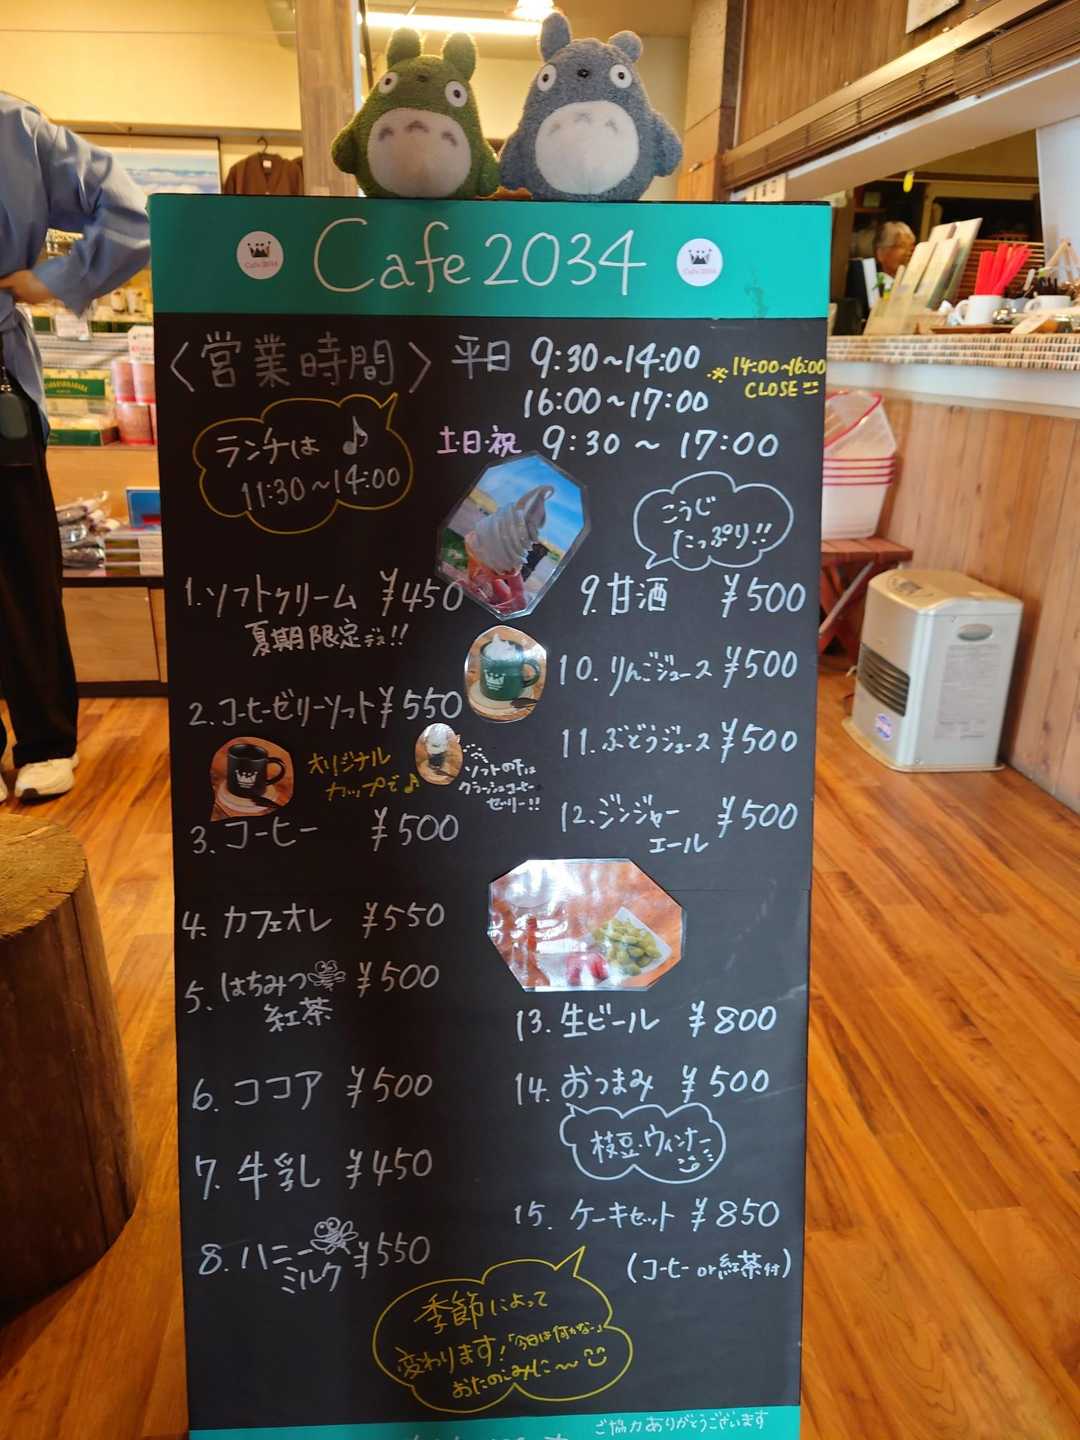 Cafe 2034
Cafe 2034
Cafe 2034
〈営業時間〉 平日 9:30~14:00 ※14:00~16:00
CLOSE
16:00~17:00
土・日・祝 9:30 ~ 17:00
ランチは♪
11:30~14:00
こうじ
たっぷり!!
1.ソフトクリーム ¥450
夏期限定デス!!
2.コーヒーゼリーソフト ¥550
オリジナル
カップで♪
ソフトの下は
クラッシュコーヒー
ゼリー!!
3.コーヒー ¥500
4.カフェオレ ¥550
5.はちみつ ¥500
紅茶
6.ココア ¥500
7.牛乳 ¥450
8.ハニー ¥550
ミルク
9.甘酒 ¥500
10.りんごジュース ¥500
11.ぶどうジュース ¥500
12.ジンジャー ¥500
エール
13.生ビール ¥800
14.おつまみ ¥500
枝豆・ウィンナー
15.ケーキセット ¥850
(コーヒー or 紅茶付)
季節によって
変わります!「今日は何かな~」
おたのしみに~
ご協力ありがとうございます